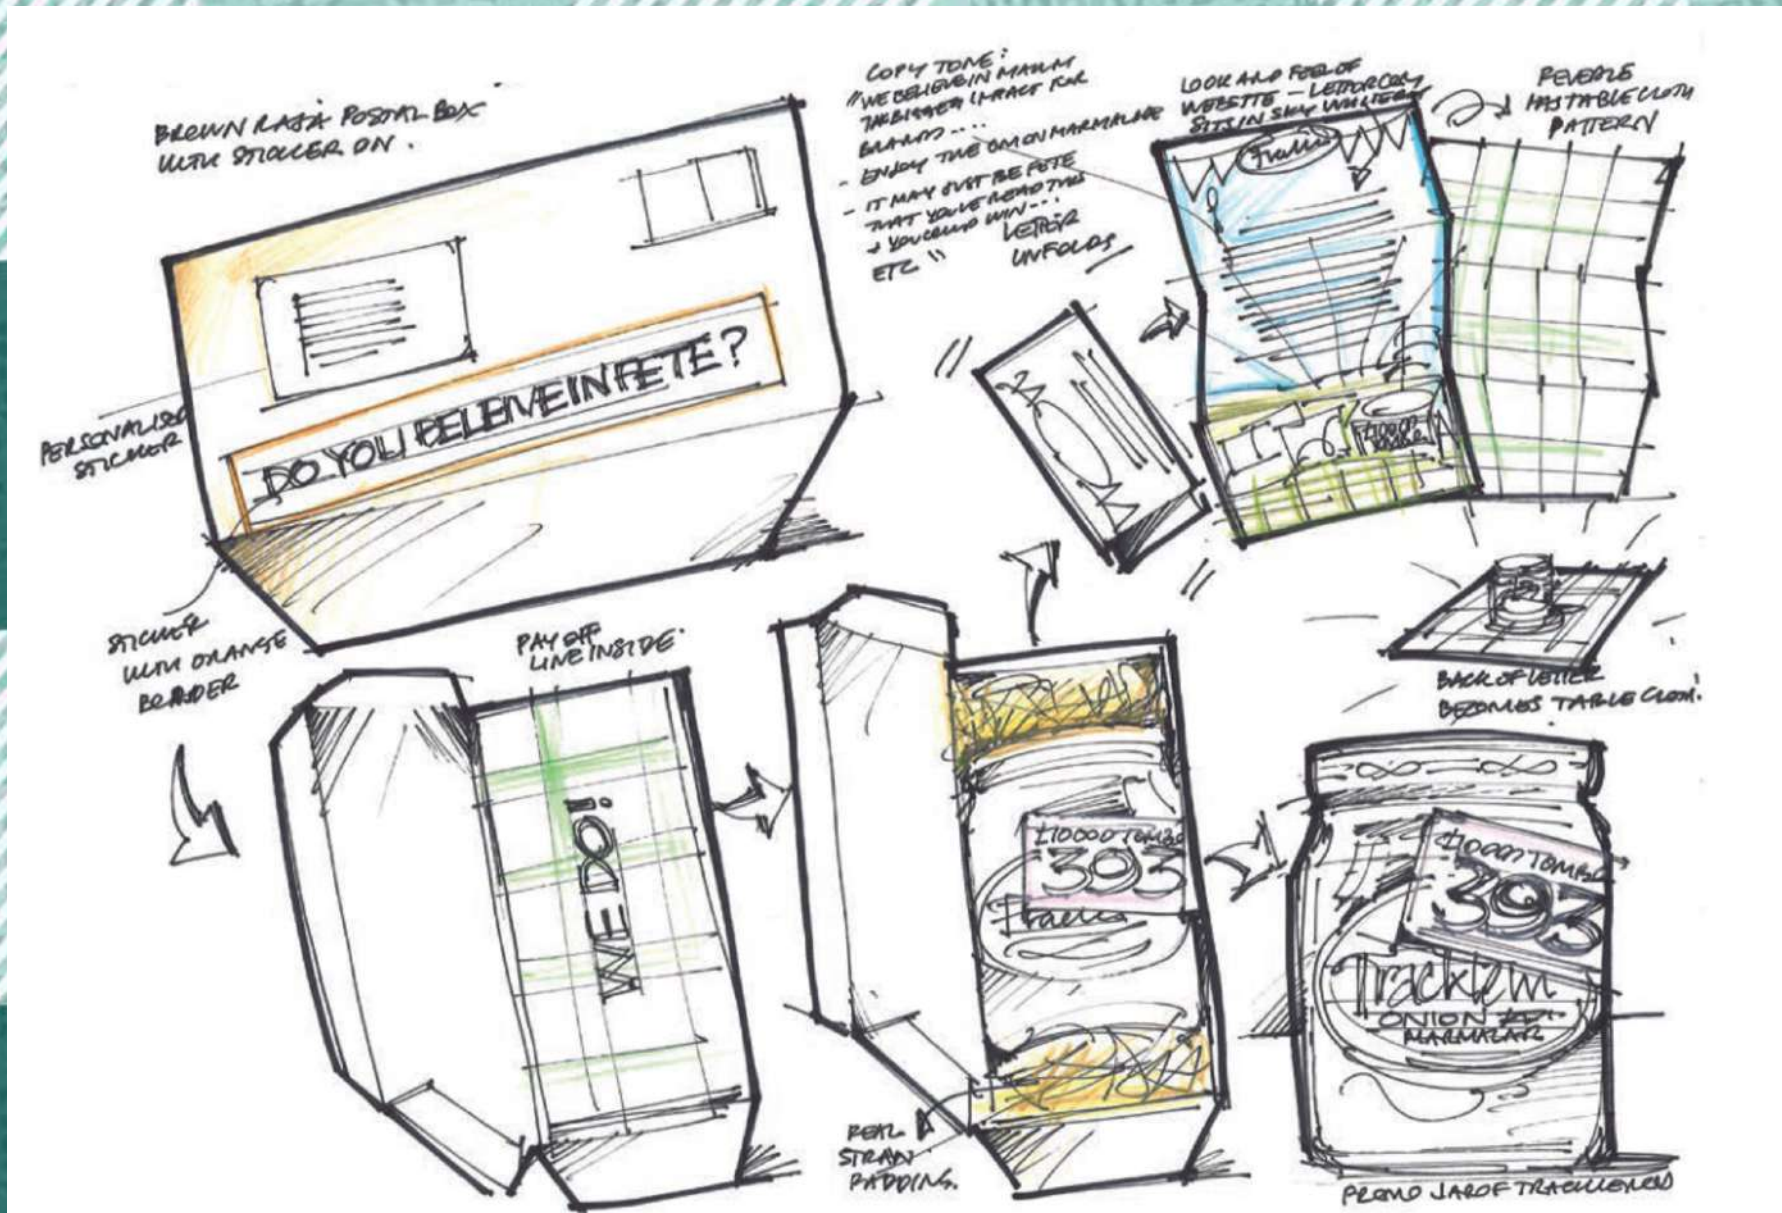 BROWN RAJA POSTAL BOX
WITH STICKER ON.
DO YOU BELEIVE IN FETE?
PERSONALISED
STICKER
STICKER
WITH ORANGE
BORDER
COPY TONE:
"WE BELIEVE IN MAKING
THE BIGGEST IMPACT FOR
BRANDS....
- ENJOY THE ONION MARMALADE
- IT MAY JUST BE FETE
THAT YOU'VE READ THIS
+ YOU COULD WIN...
ETC "
LETTER
UNFOLDS
LOOK AND FEEL OF
WEBSITE - LETTER COPY
SITS IN SKY
REVERSE
HAS TABLE CLOTH
PATTERN
BACK OF LETTER
BECOMES TABLE CLOTH!
PAY OFF
LINE INSIDE.
WE DO!
£10000 TOMBO
303
REAL
STRAW
PADDING.
£10000 TOMBO
303
Tracklem
ONION
MARMALADE
PROMO JAR OF TRACKLEMENTS